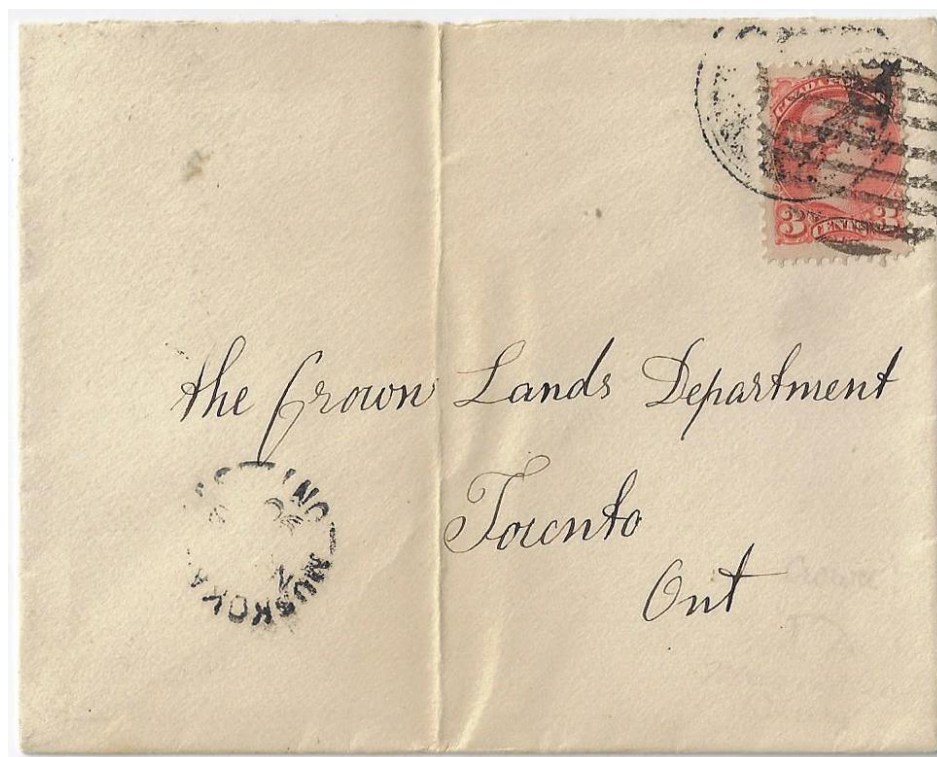 CANADA
3 CENTS 3
the Crown Lands Department
Toronto
Ont
MUSKOKA